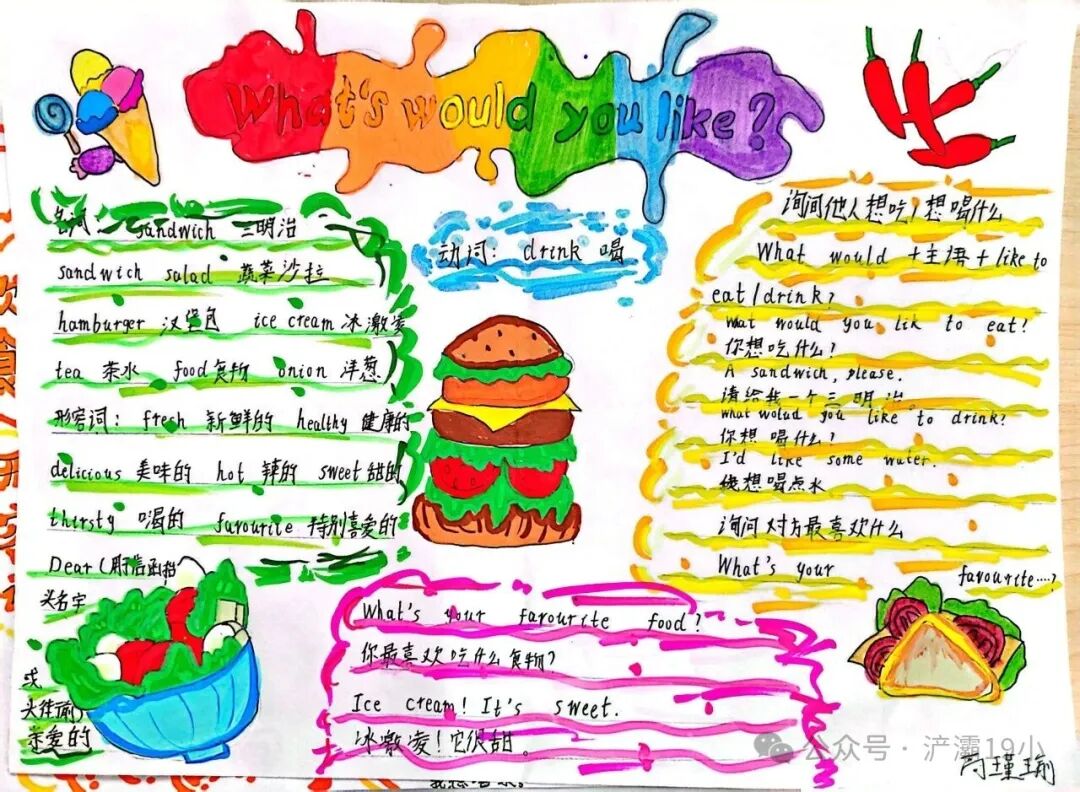 What's would you like?
名词： sandwich 三明治
sandwich salad 蔬菜沙拉
hamburger 汉堡包 ice cream 冰激凌
tea 茶水 food 食物 onion 洋葱
形容词： fresh 新鲜的 healthy 健康的
delicious 美味的 hot 辣的 sweet 甜的
thirsty 喝的 favourite 特别喜爱的
Dear (用信函抬
头名字
或
头衔前)
亲爱的
动词： drink 喝
询问他人想吃/想喝什么
What would +主语+ like to
eat/drink?
What would you lik to eat?
你想吃什么?
A sandwich, please.
请给我一个三明治。
What wolud you like to drink?
你想喝什么?
I'd like some water.
想喝点水
询问对方最喜欢什么
What's your favourite....?
What's your favourite food?
你最喜欢吃什么食物?
Ice cream! It's sweet.
冰激凌！它很甜。
公众号·浐灞19小
瑾瑜